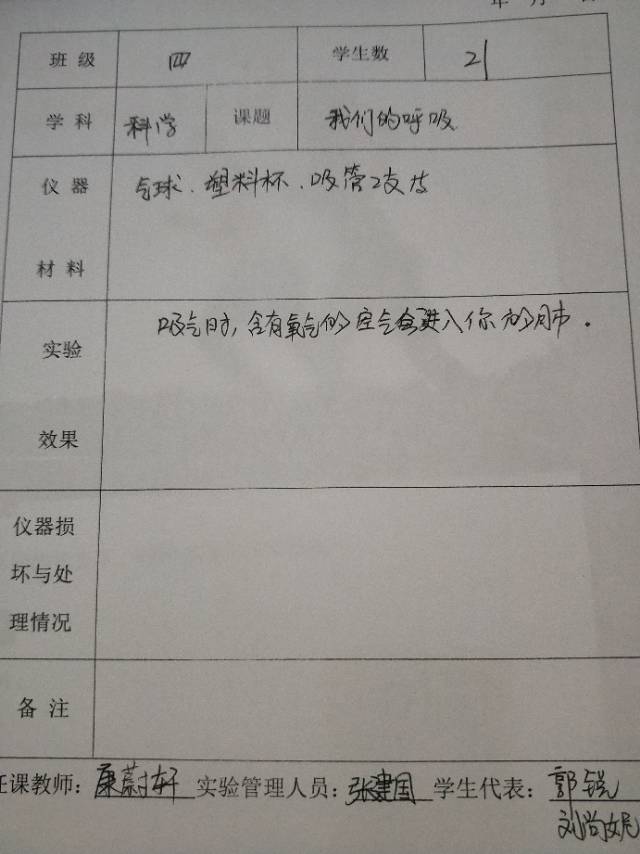 年 月
班级 四 学生数 21
学科 科学 课题 我们的呼吸
仪器 气球、塑料杯、吸管2支
材料
吸气时,含有氧气的空气会进入你的肺。
实验
效果
仪器损
坏与处
理情况
备注
任课教师:康蔚轩 实验管理人员:张建国 学生代表:郭锐
刘尚妮